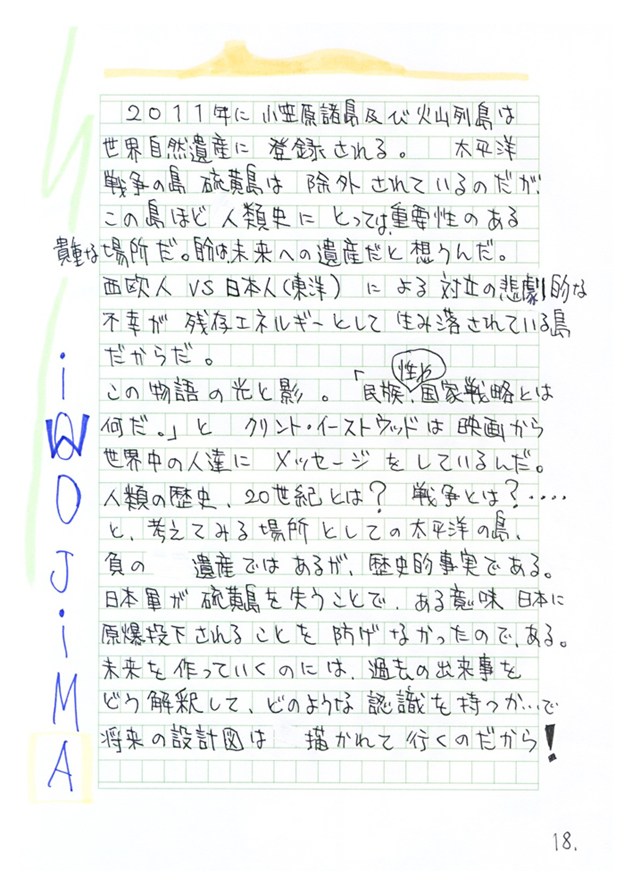 2011年に 小笠原諸島及び火山列島は
世界自然遺産に 登録される。 太平洋
戦争の島 硫黄島は 除外されているのだが、
この島ほど 人類史に とっては重要性のある
貴重な場所だ。僕は未来への遺産だと想うんだ。
西欧人 VS 日本人(東洋) による 対立の悲劇的な
不幸が 残存エネルギーとして 生み落されている島
だからだ。
この物語の光と影。「民族性や、国家戦略とは
何だ。」と クリント・イーストウッドは 映画から
世界中の人達に メッセージ をしているんだ。
人類の歴史、20世紀とは? 戦争とは?‥‥
と、考えてみる場所としての太平洋の島、
負の 遺産ではあるが、歴史的事実である。
日本軍が 硫黄島を失うことで、ある意味 日本に
原爆投下されることを 防げなかったので、ある。
未来を作っていくのには、過去の出来事を
どう解釈して、どのような認識を持つか…で
将来の設計図は 描かれて行くのだから!
iWO JiMA
18.